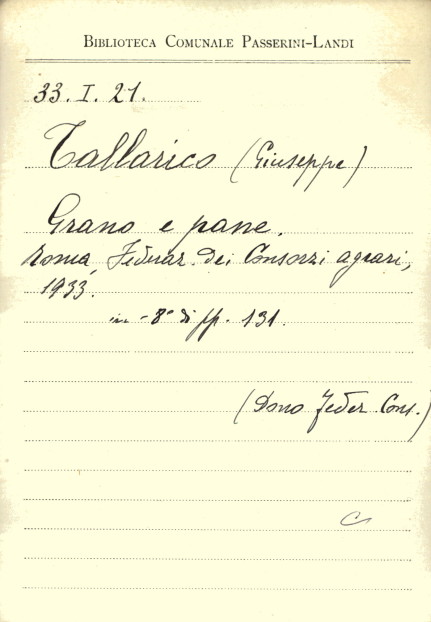 BIBLIOTECA COMUNALE PASSERINI-LANDI
33. I. 21.
Tallarico (Giuseppe)
Grano e pane.
Roma, Federaz. dei Consorzi agrari,
1933.
in-8° di pp. 131.
(Dono Feder. Cons.)